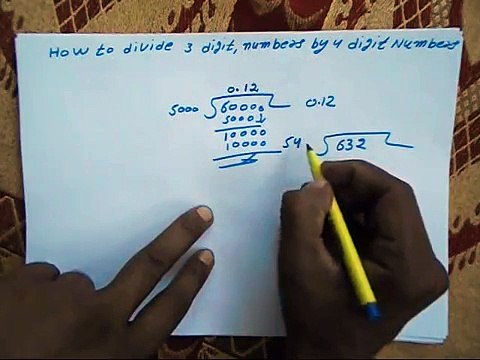 How to divide 3 digit, numbers by 4 digit Numbers
0.12
5000 60000 0.12
50001
10000
10000 54 632